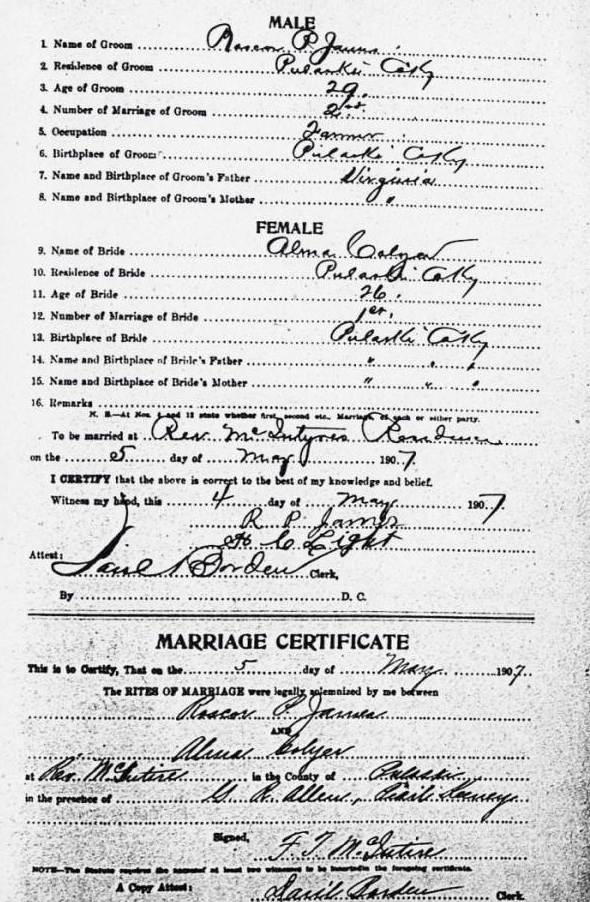 MALE
1. Name of Groom Roscor P. James
2. Residence of Groom Pulaski Co Ky
3. Age of Groom 29.
4. Number of Marriage of Groom
5. Occupation Farmer
6. Birthplace of Groom Pulaski Co Ky
7. Name and Birthplace of Groom's Father Virginia
8. Name and Birthplace of Groom's Mother "
FEMALE
9. Name of Bride Alma Colyer
10. Residence of Bride Pulaski Co Ky
11. Age of Bride 26.
12. Number of Marriage of Bride 1st.
13. Birthplace of Bride Pulaski Co Ky
14. Name and Birthplace of Bride's Father " " "
15. Name and Birthplace of Bride's Mother " " "
16. Remarks
N. B.—At Nos. 4 and 12 state whether first, second etc., Marriage of each or either party.
To be married at Rev. McIntyres Residence
on the 5 day of May 1907.
I CERTIFY that the above is correct to the best of my knowledge and belief.
Witness my hand, this 4 day of May 1907.
R P James
H C Light
Attest:
Borden Clerk,
By D. C.
MARRIAGE CERTIFICATE
This is to Certify, That on the 5 day of May 1907.
The RITES OF MARRIAGE were legally solemnized by me between
Roscor P. James
AND
Alma Colyer
at Rev. McIntire in the County of Pulaski
in the presence of G. R. Allen,
Signed,
F. T. McIntire
NOTE—The Statute requires the names of at least two witnesses to be inserted in the foregoing certificate.
A Copy Attest: Borden Clerk.